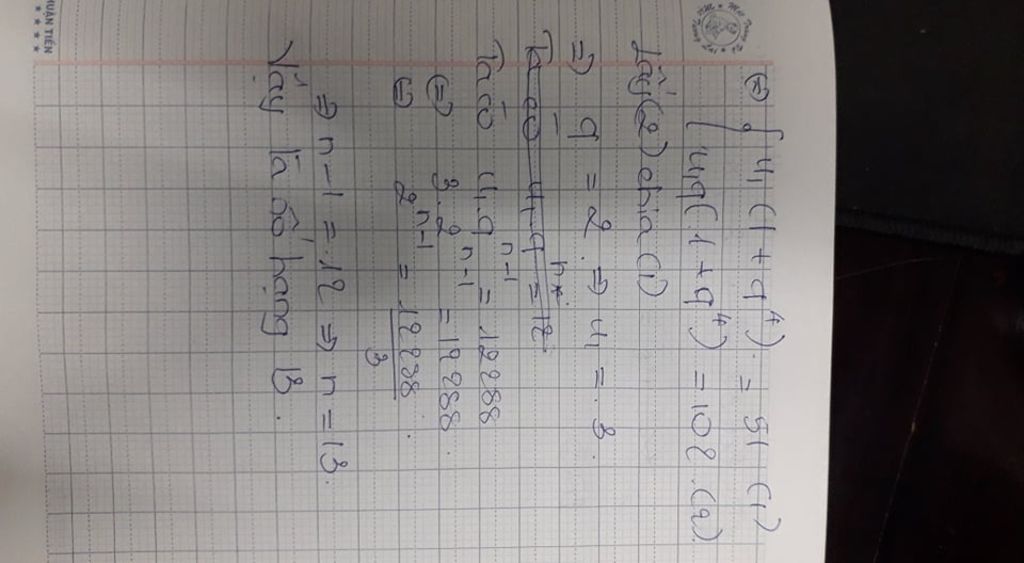 (=) { u₁(1+q⁴) = 51 (1)
u₁q(1+q⁴) = 102.(2)
Lấy (2) chia (1)
=> q = 2. => u₁ = 3.
Ta có u₁.qⁿ = 12
Ta có u₁.qⁿ⁻¹ = 12288
(=) 3.2ⁿ⁻¹ = 12288.
(=) 2ⁿ⁻¹ = 12288/3.
=> n-1 = 12 => n = 13.
Vậy là số hạng 13.
THUẬN TIẾN